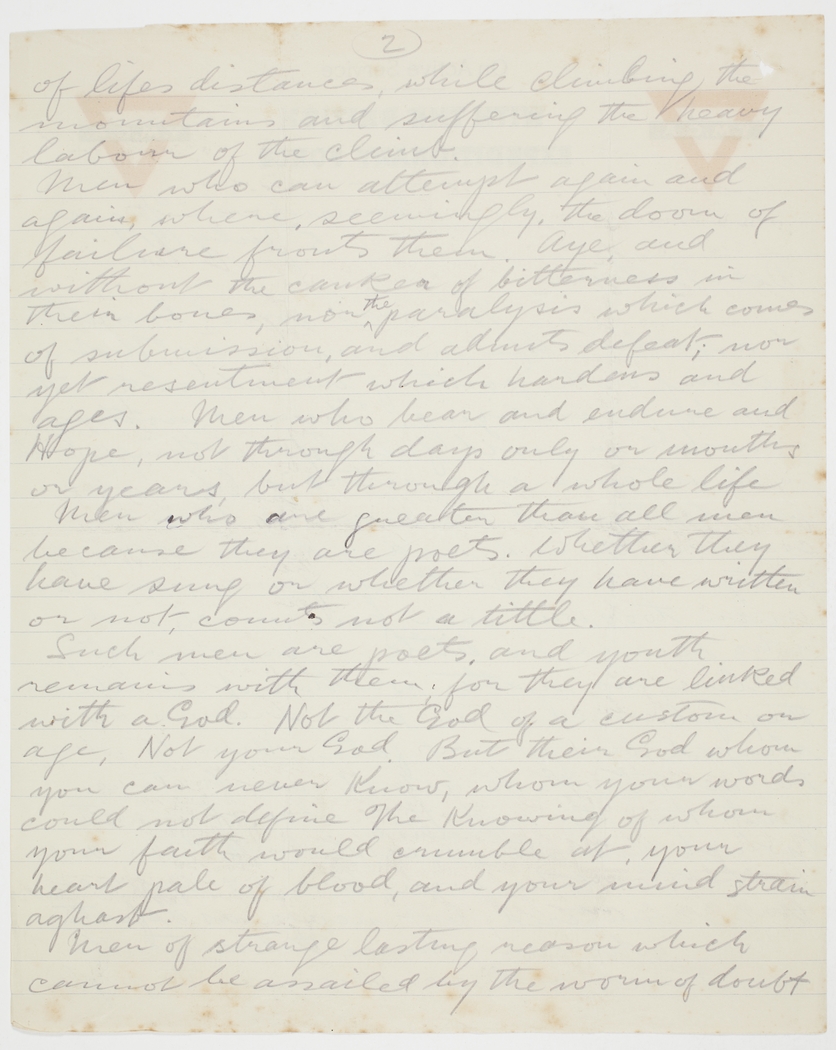 2
of lifes distances, while climbing the
mountains and suffering the heavy
labour of the climb.
Men who can attempt again and
again, where, seemingly, the doom of
failure fronts them. Aye, and
without the canker of bitterness in
their bones, nor the paralysis which comes
of submission, and admits defeat; nor
yet resentment which hardens and
ages. Men who bear and endure and
Hope, not through days only or months
or years, but through a whole life
Men who are greater than all men
because they are poets. Whether they
have sung or whether they have written
or not, counts not a tittle.
Such men are poets, and youth
remains with them; for they are linked
with a God. Not the God of a custom or
age, Not your God. But their God whom
you can never Know, whom your words
could not define The Knowing of whom
your faith would crumble at, your
heart pale of blood, and your mind strain
aghast.
Men of strange lasting reason which
cannot be assailed by the worm of doubt